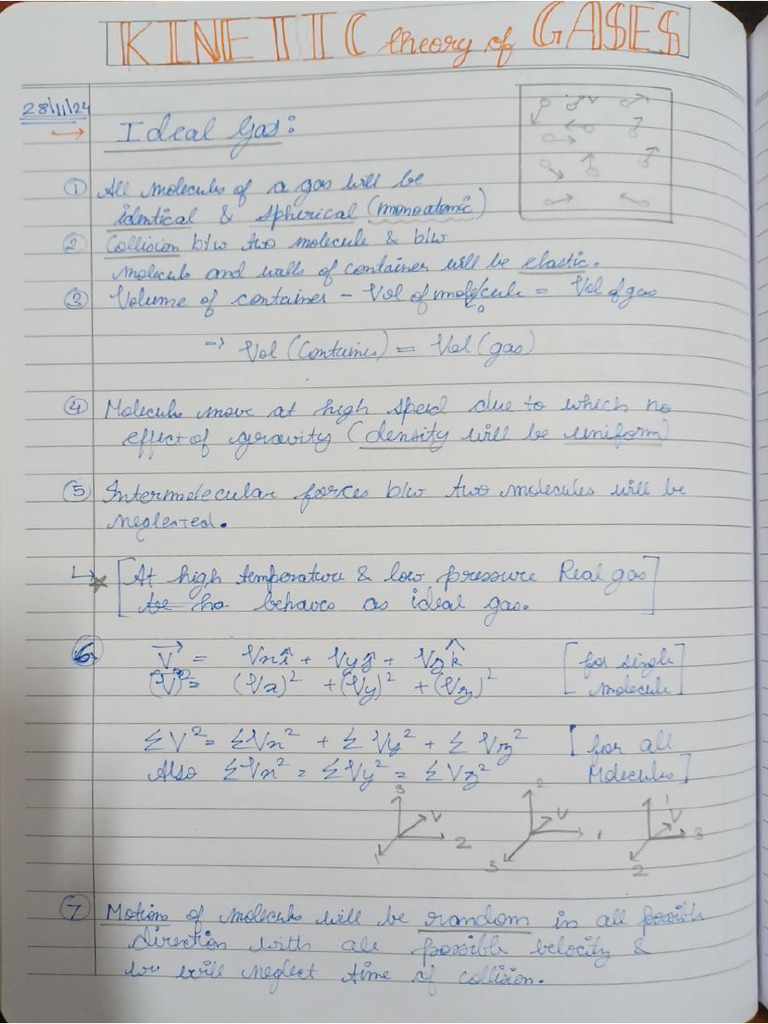 KINETIC theory of GASES
28/11/24
Ideal Gas:
① All molecules of a gas will be
identical & spherical (monoatomic)
② Collision b/w two molecule & b/w
molecule and walls of container will be elastic.
③ Volume of container - Vol of molecule = Vol of gas
⇒ Vol (Container) = Vol (gas)
④ Molecules move at high speed due to which no
effect of gravity (density will be uniform)
⑤ Intermolecular forces b/w two molecules will be
neglected.
[At high temperature & low pressure Real gas
behaves as ideal gas.]
⑥ V⃗ = Vxî + Vyĵ + Vzk̂ [for single
(V)² = (Vx)² + (Vy)² + (Vz)² molecule]
ΣV² = ΣVx² + ΣVy² + ΣVz² [for all
Also ΣVx² = ΣVy² = ΣVz² Molecules]
3 V 2 1
2 V 1 3
1 V 3 2
⑦ Motion of molecules will be random in all possible
direction with all possible velocity &
we will neglect time of collision.